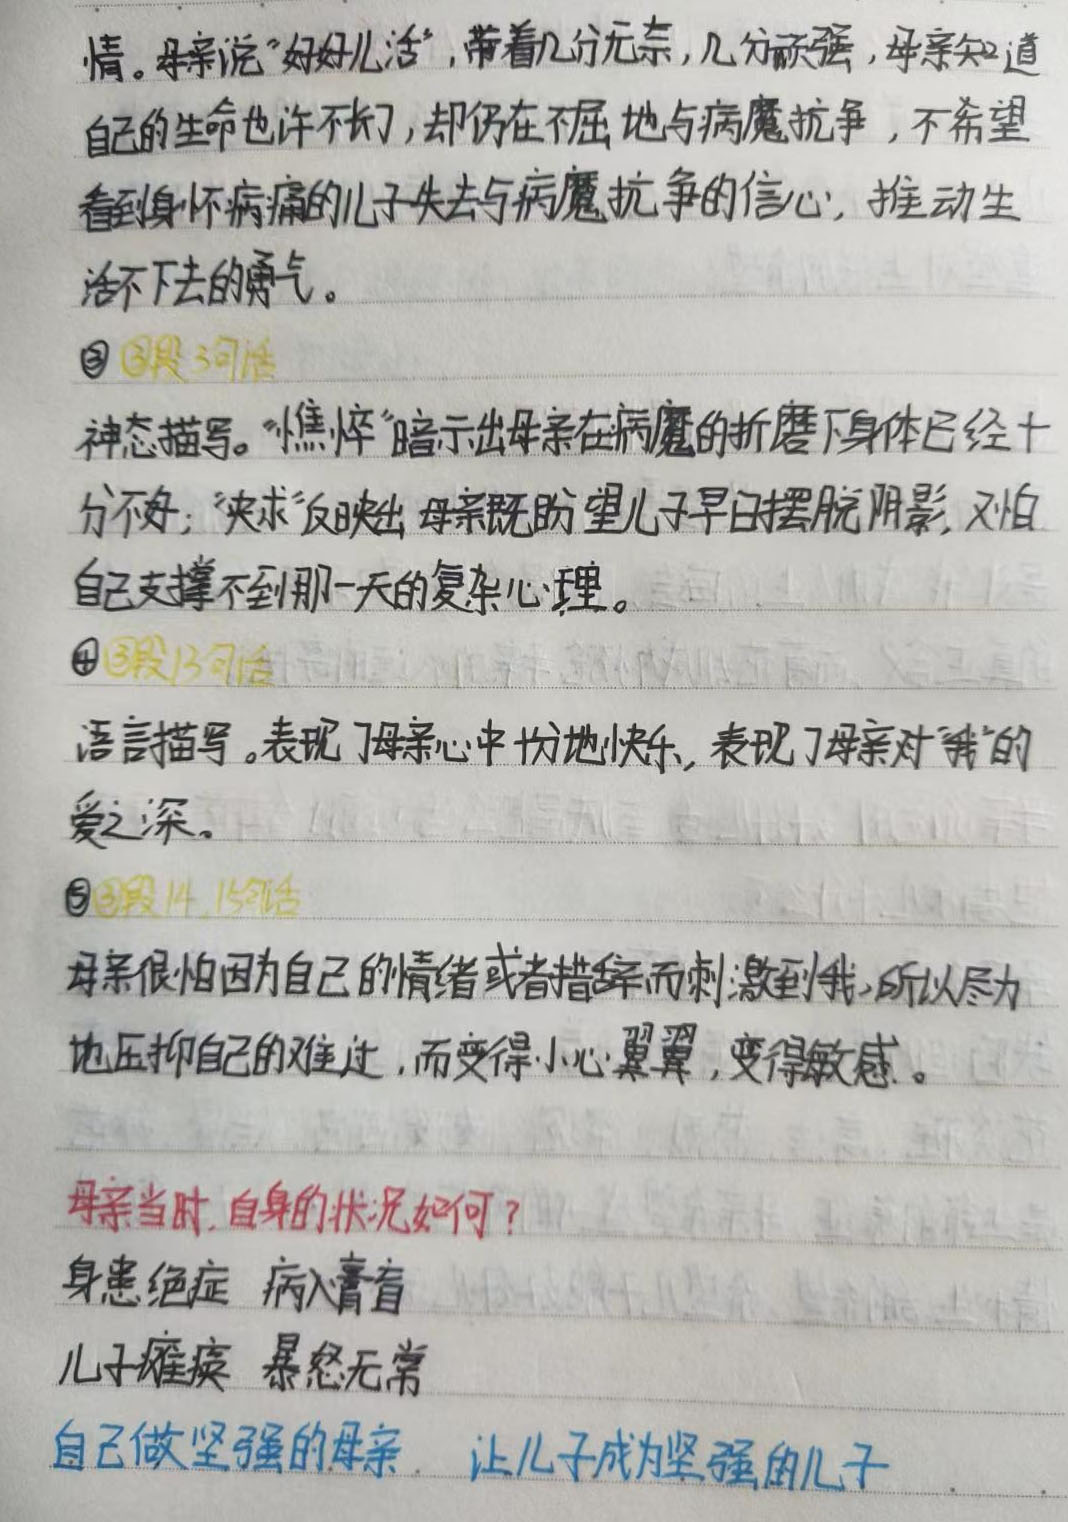 情。母亲说“好好儿活”,带着几分无奈,几分顽强,母亲知道
自己的生命也许不长了,却仍在不屈地与病魔抗争,不希望
看到身怀病痛的儿子失去与病魔抗争的信心,推动生
活不下去的勇气。
③ ③段3句话
神态描写。“憔悴”暗示出母亲在病魔的折磨下身体已经十
分不好;“央求”反映出母亲既盼望儿子早日摆脱阴影,又怕
自己支撑不到那一天的复杂心理。
④ ③段13句话
语言描写。表现了母亲心中十分地快乐,表现了母亲对“我”的
爱之深。
⑤ ③段14,15句话
母亲很怕因为自己的情绪或者措辞而刺激到我,所以尽力
地压抑自己的难过,而变得小心翼翼,变得敏感。
母亲当时,自身的状况如何?
身患绝症 病入膏肓
儿子瘫痪 暴怒无常
自己做坚强的母亲 让儿子成为坚强的儿子